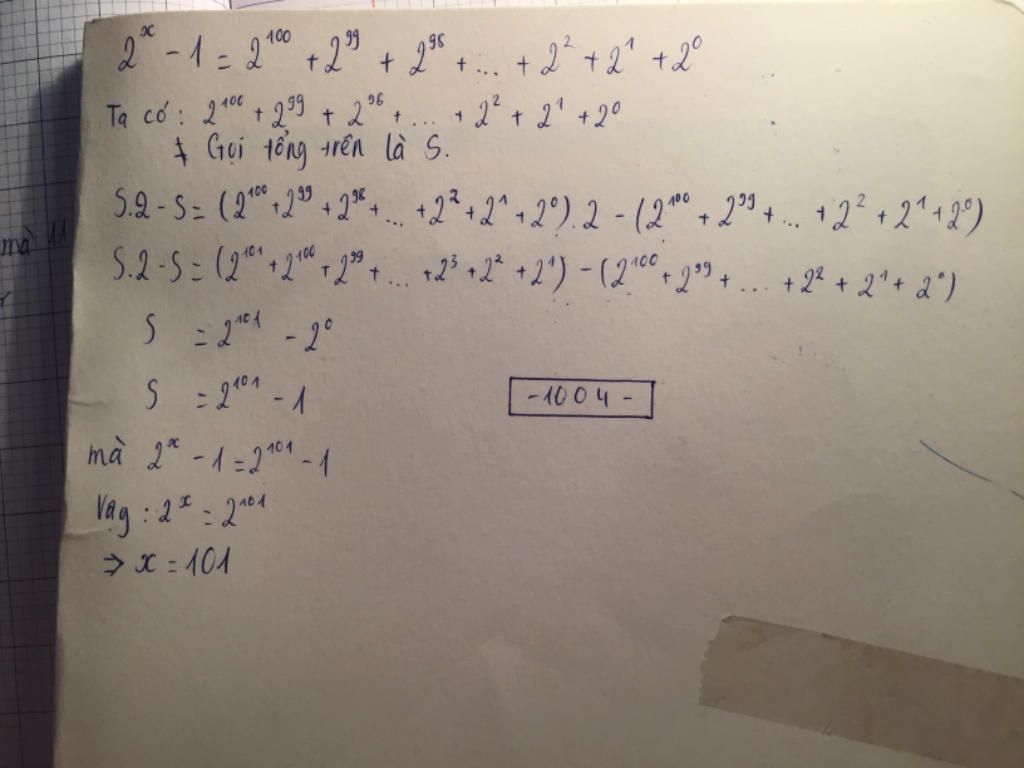 2^x - 1 = 2^100 + 2^99 + 2^98 + ... + 2^2 + 2^1 + 2^0
Ta có: 2^100 + 2^99 + 2^98 + ... + 2^2 + 2^1 + 2^0
Gọi tổng trên là S.
S.2 - S = (2^100 + 2^99 + 2^98 + ... + 2^2 + 2^1 + 2^0).2 - (2^100 + 2^99 + ... + 2^2 + 2^1 + 2^0)
mà 11
S.2 - S = (2^101 + 2^100 + 2^99 + ... + 2^3 + 2^2 + 2^1) - (2^100 + 2^99 + ... + 2^2 + 2^1 + 2^0)
S = 2^101 - 2^0
S = 2^101 - 1
-1004-
mà 2^x - 1 = 2^101 - 1
Vậy : 2^x = 2^101
⇒ x = 101